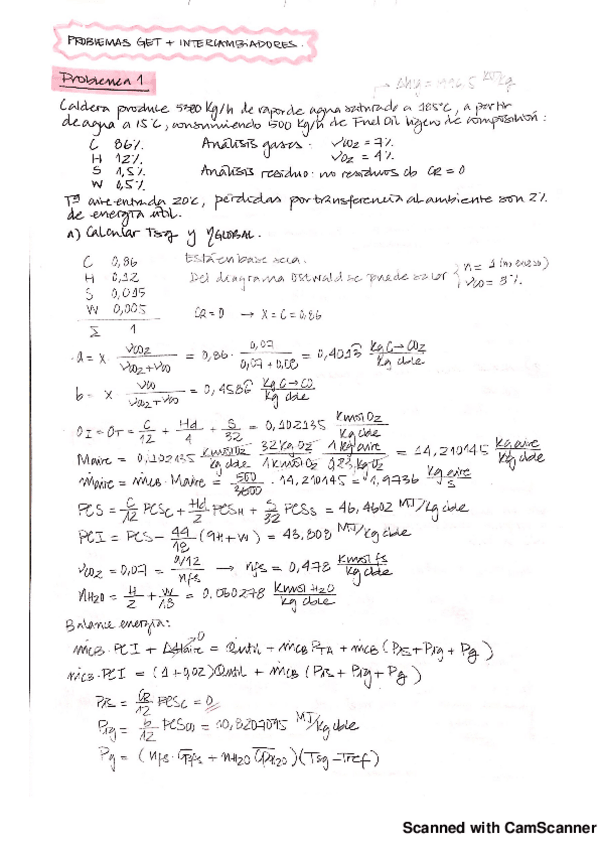 PROBLEMAS GET + INTERCAMBIADORES.
Problema 1
Caldera produce 5300 Kg/h de vapor de agua saturado a 185ºC, a partir
de agua a 15ºC, consumiendo 500 Kg/h de Fuel Oil ligero de composición:
C 86% Análisis gases: νCO2 = 7%
H 12% νO2 = 4%
S 1,5% Análisis residuo: no residuos CR = 0
W 0,5%
Tª aire entrada 20ºC, pérdidas por transferencia al ambiente son 2%
de energía útil.
a) Calcular Tsg y ηGLOBAL.
C 0,86 Está en base seca.
H 0,12 Del diagrama Ostwald se puede sacar
S 0,015 νCO = 8%
W 0,005 CR=0 → X=C=0,86
Σ 1
a = X · νCO2 / (νCO2+νCO) = 0,86 · 0,07 / (0,07+0,08) = 0,4013 KgC→CO2 / Kg cble
b = X · νCO / (νCO2+νCO) = 0,4586 KgC→CO / Kg cble
OI=OT = C/12 + Hd/4 + S/32 = 0,102135 KmolO2 / Kg cble
Maire = 0,102135 KmolO2/Kg cble · 32KgO2/1KmolO2 · 1Kg aire/0,23KgO2 = 14,210145 Kg aire/Kg cble
ṁaire = ṁcb · Maire = 500/3600 · 14,210145 = 1,9736 Kg aire/s
PCS = C/12 PCSC + Hd/2 PCSH + S/32 PCSS = 46,4602 MJ/Kg cble
PCI = PCS - 44/18 (9H+W) = 43,808 MJ/Kg cble
νCO2 = 0,07 = a/12 / nfs → nfs = 0,478 Kmol fs / Kg cble
nH2O = H/2 + W/18 = 0.060278 Kmol H2O / Kg cble
Balance energía:
ṁcb·PCI + ΔHaire = Qutil - ṁcb PTA + ṁcb (PRS + PIg + Pg)
ṁcb·PCI = (1+0,02)Qutil + ṁcb (PRS + PIg + Pg)
PRS = CR/12 PCSC = 0
PIg = b/12 PCSCO = 10,8207095 MJ/Kg cble
Pg = (nfs · CPfs + nH2O CPH2O)(Tsg - Tref)
Scanned with CamScanner